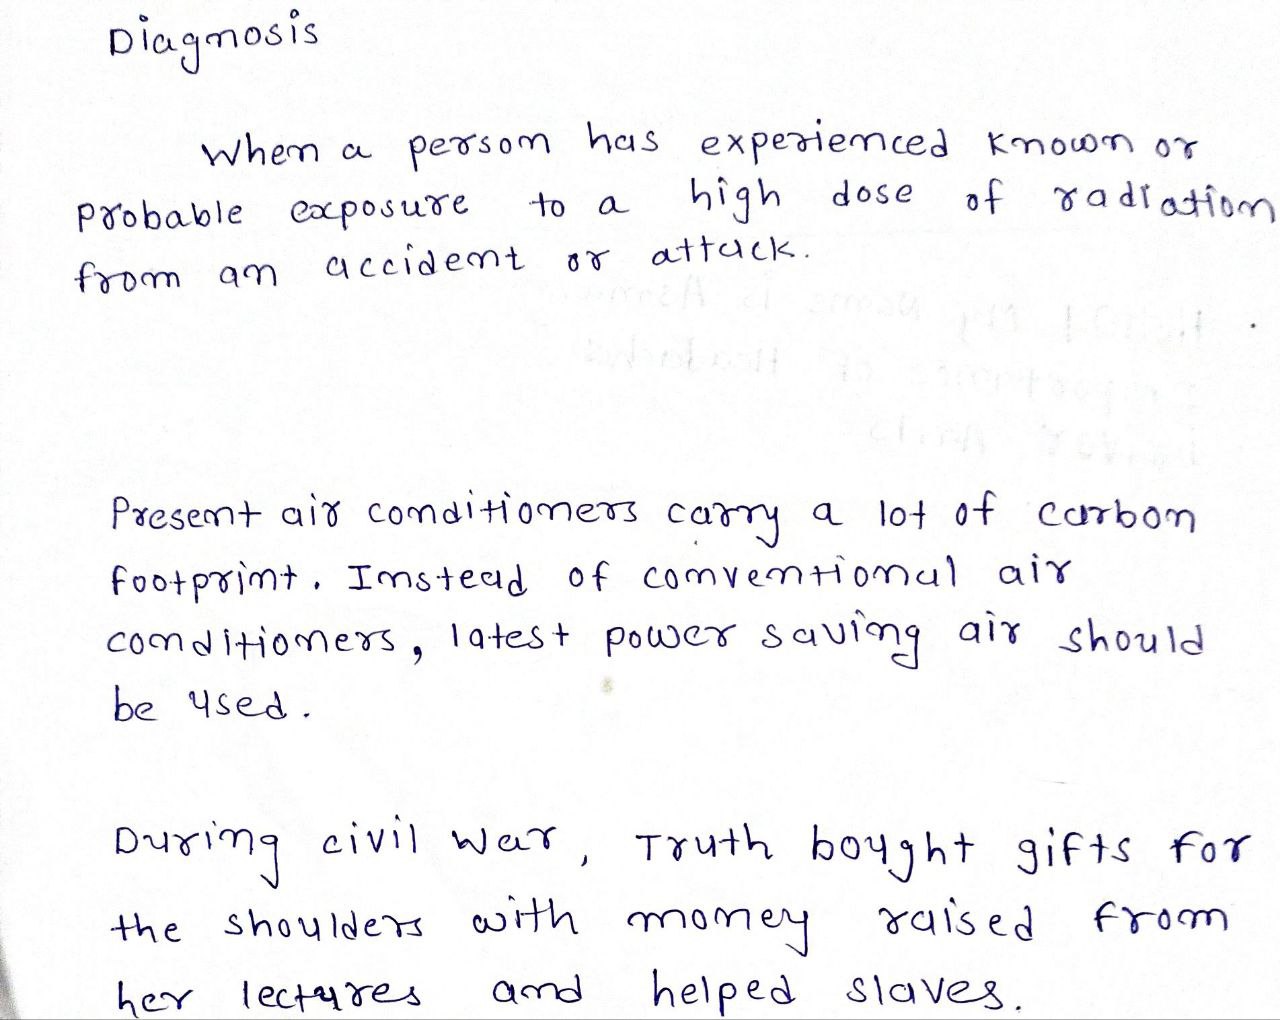 Diagnosis
When a person has experienced known or
probable exposure to a high dose of radiation
from an accident or attack.
Present air conditioners carry a lot of carbon
footprint. Instead of conventional air
conditioners, latest power saving air should
be used.
During civil war, Truth bought gifts for
the shoulders with money raised from
her lectures and helped slaves.